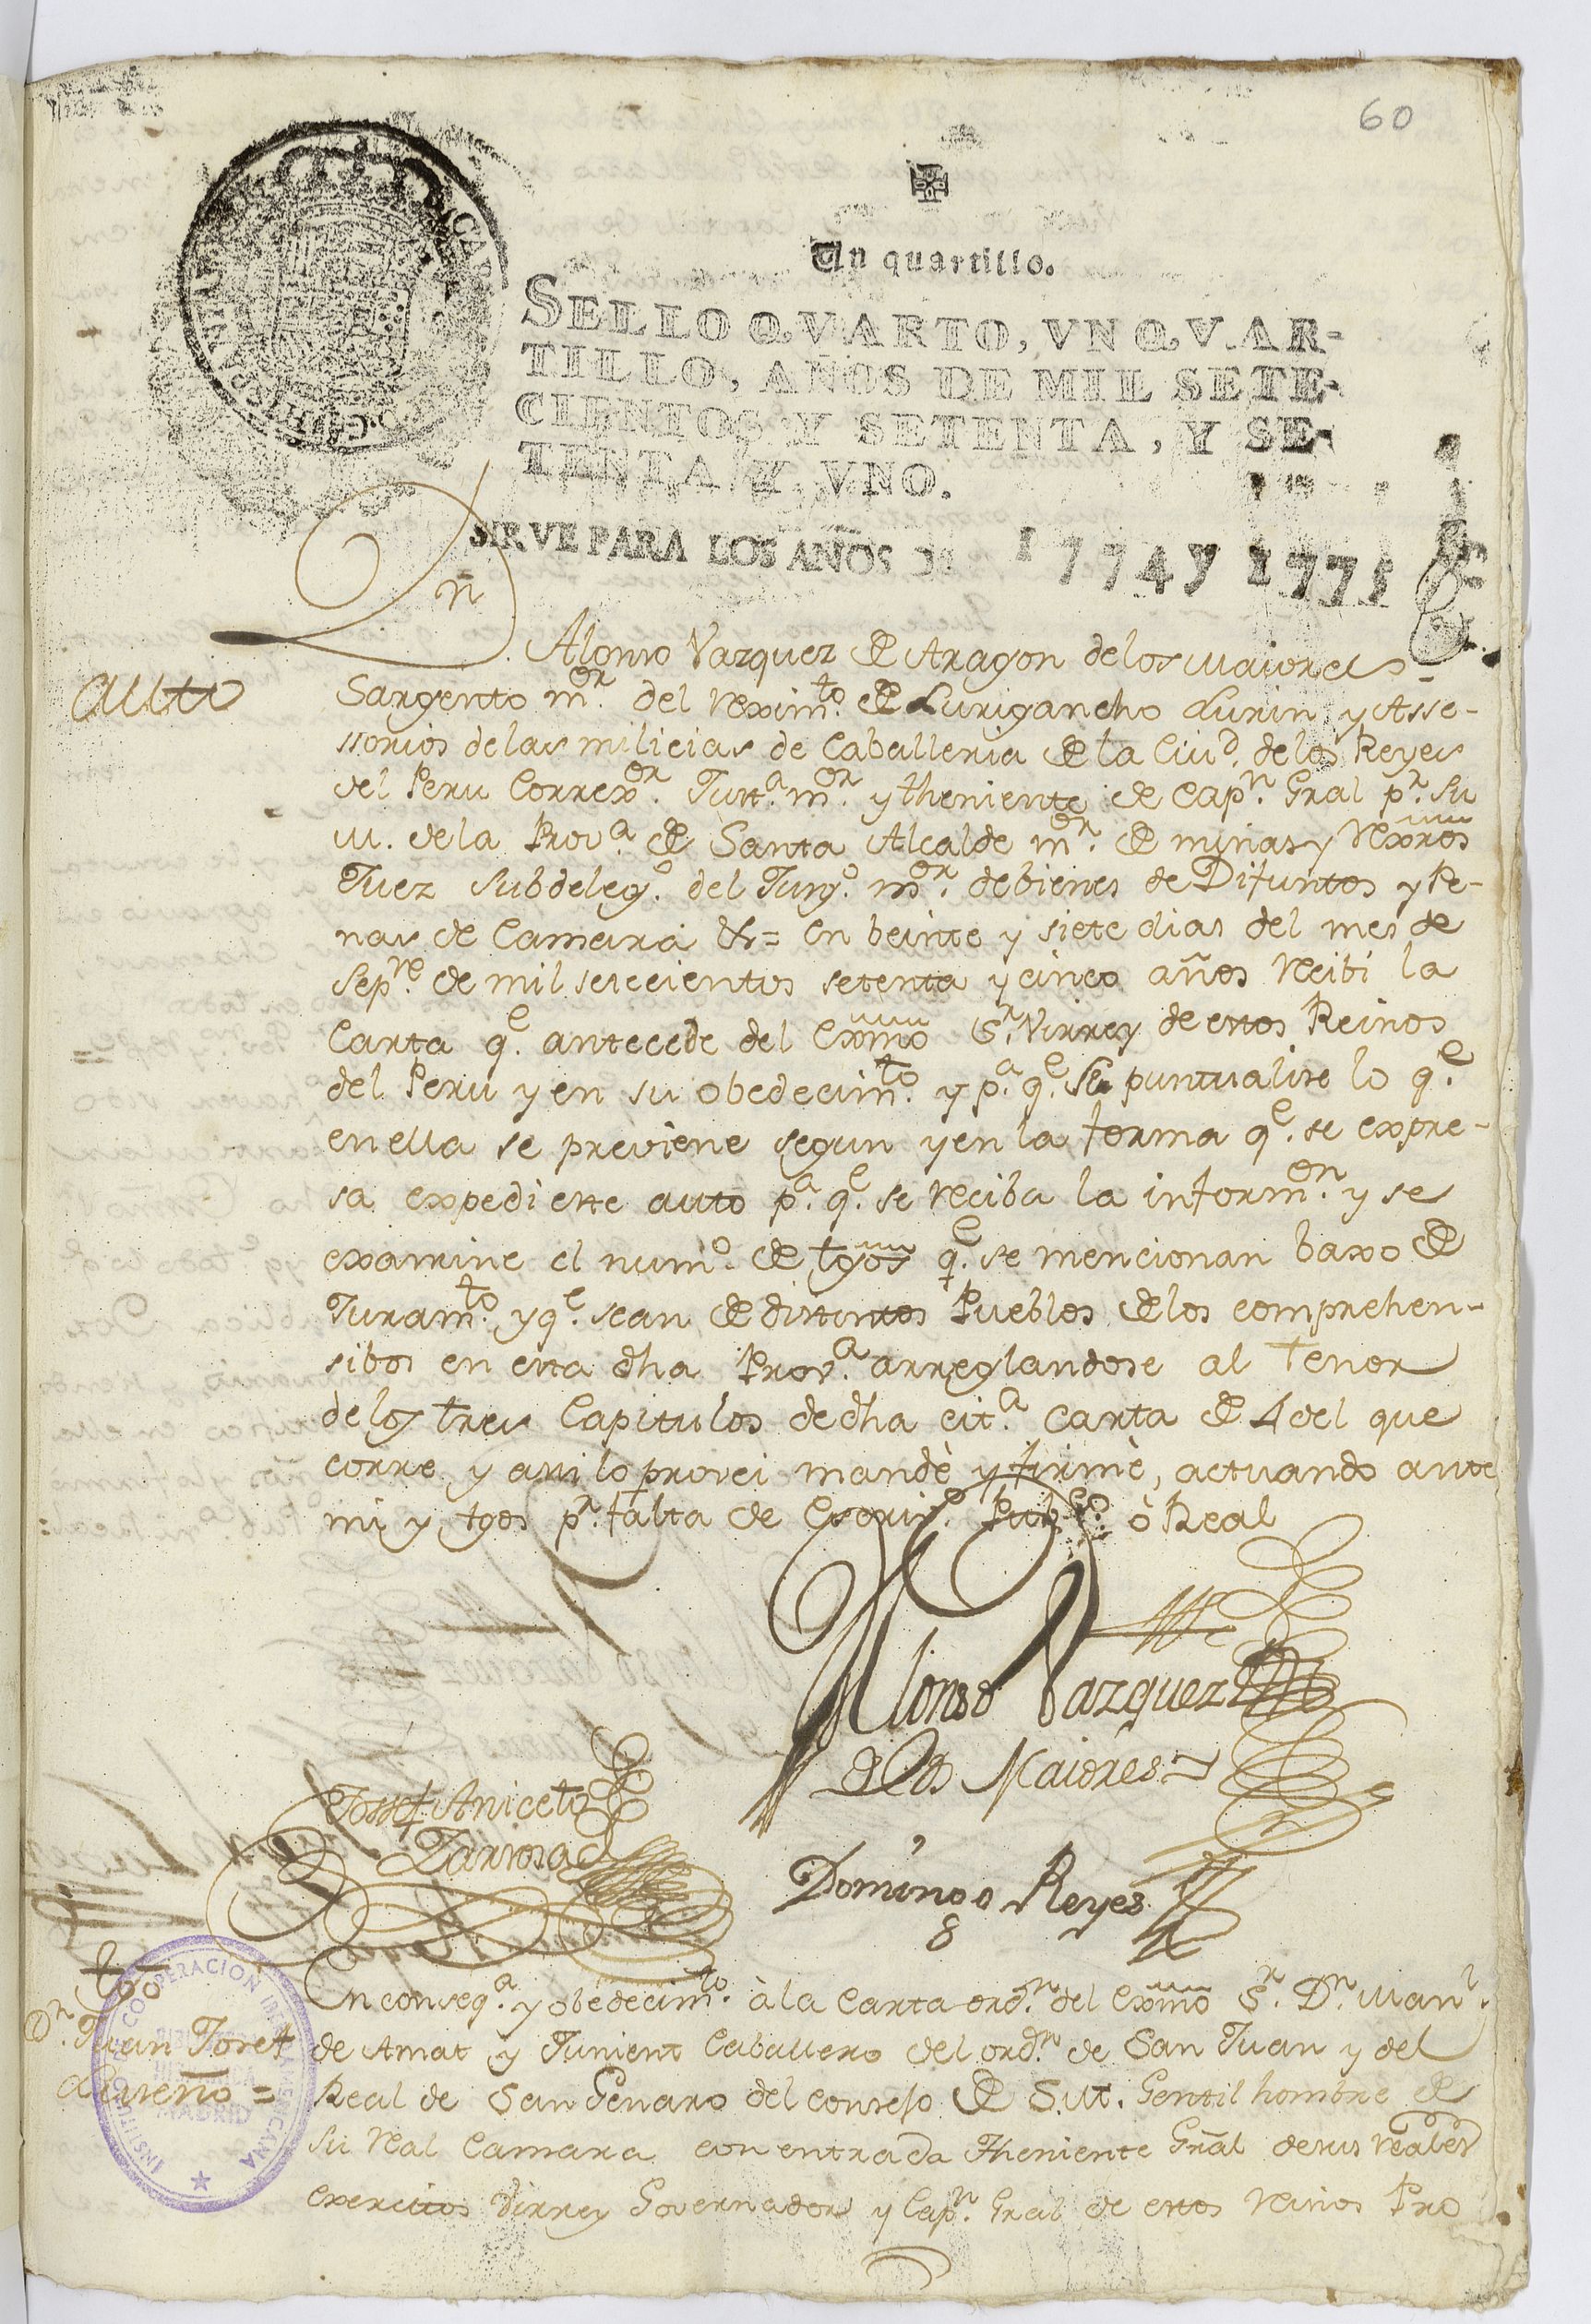 60
Un quartillo.
SELLO QVARTO, VN QVAR-
TILLO, AÑOS DE MIL SETE-
CIENTOS Y SETENTA, Y SE-
TENTA Y VNO.
SIRVE PARA LOS AÑOS DE 1774 y 1775
Dn
Alonso Vazquez de Aragon de los Maiores
Auto
Sargento mor. del Rexim.to de Lurigancho Lurin y Asse-
ssorios de las milicias de Caballeria de la Ciud. de los Reyes
del Peru Correxor. Justa. mor. y theniente de Capn. Gral pr. Su
M. de la Prova. de Santa Alcalde mor. de minas y Rexros
Juez Subdelego. del Juzgo. mor. de bienes de Difuntos y Pe-
nas de Camara &= en beinte y siete dias del mes de
Sepre. de mil setecientos setenta y cinco años Recibi la
Carta qe. antecede del Exmo Sr. Virrey de estos Reinos
del Peru y en su obedecimto. y pa. qe. se puntualise lo qe.
en ella se previene segun y en la forma qe. se expre-
sa expedi este auto pa. qe. se Reciba la informon. y se
examine el numo. de tgos qe. se mencionan baxo de
Juramto. y qe. sean de distintos Pueblos de los comprehen-
sibos en esta dha Prova. arreglandose al Tenor
de los tres Capitulos de dha cita. Carta de 4 del que
corre y assi lo provei mandè y firmè, actuando ante
mi y tgos pr. falta de Escrivo. Pubco. ò Real
Alonso Vazquez
de los Maiores
Jossef Aniceto
Domingo Reyes
tgo
Dn. Juan Josef
Lureño =
En conseqa. y obedecimto. à la Carta ordn. del Exmo Sr. Dn. Manl.
de Amat y Junient Caballero del ordn. de San Juan y del
Real de San Genaro del consejo de S.M. Gentil hombre de
su Real Camara con entrada Theniente Gral de sus Reales
Exercitos Virrey Governador y Capn. Gral de estos Reinos Pro
INSTITUTO DE COOPERACION IBEROAMERICANA
BIBLIOTECA
HISPANICA
MADRID